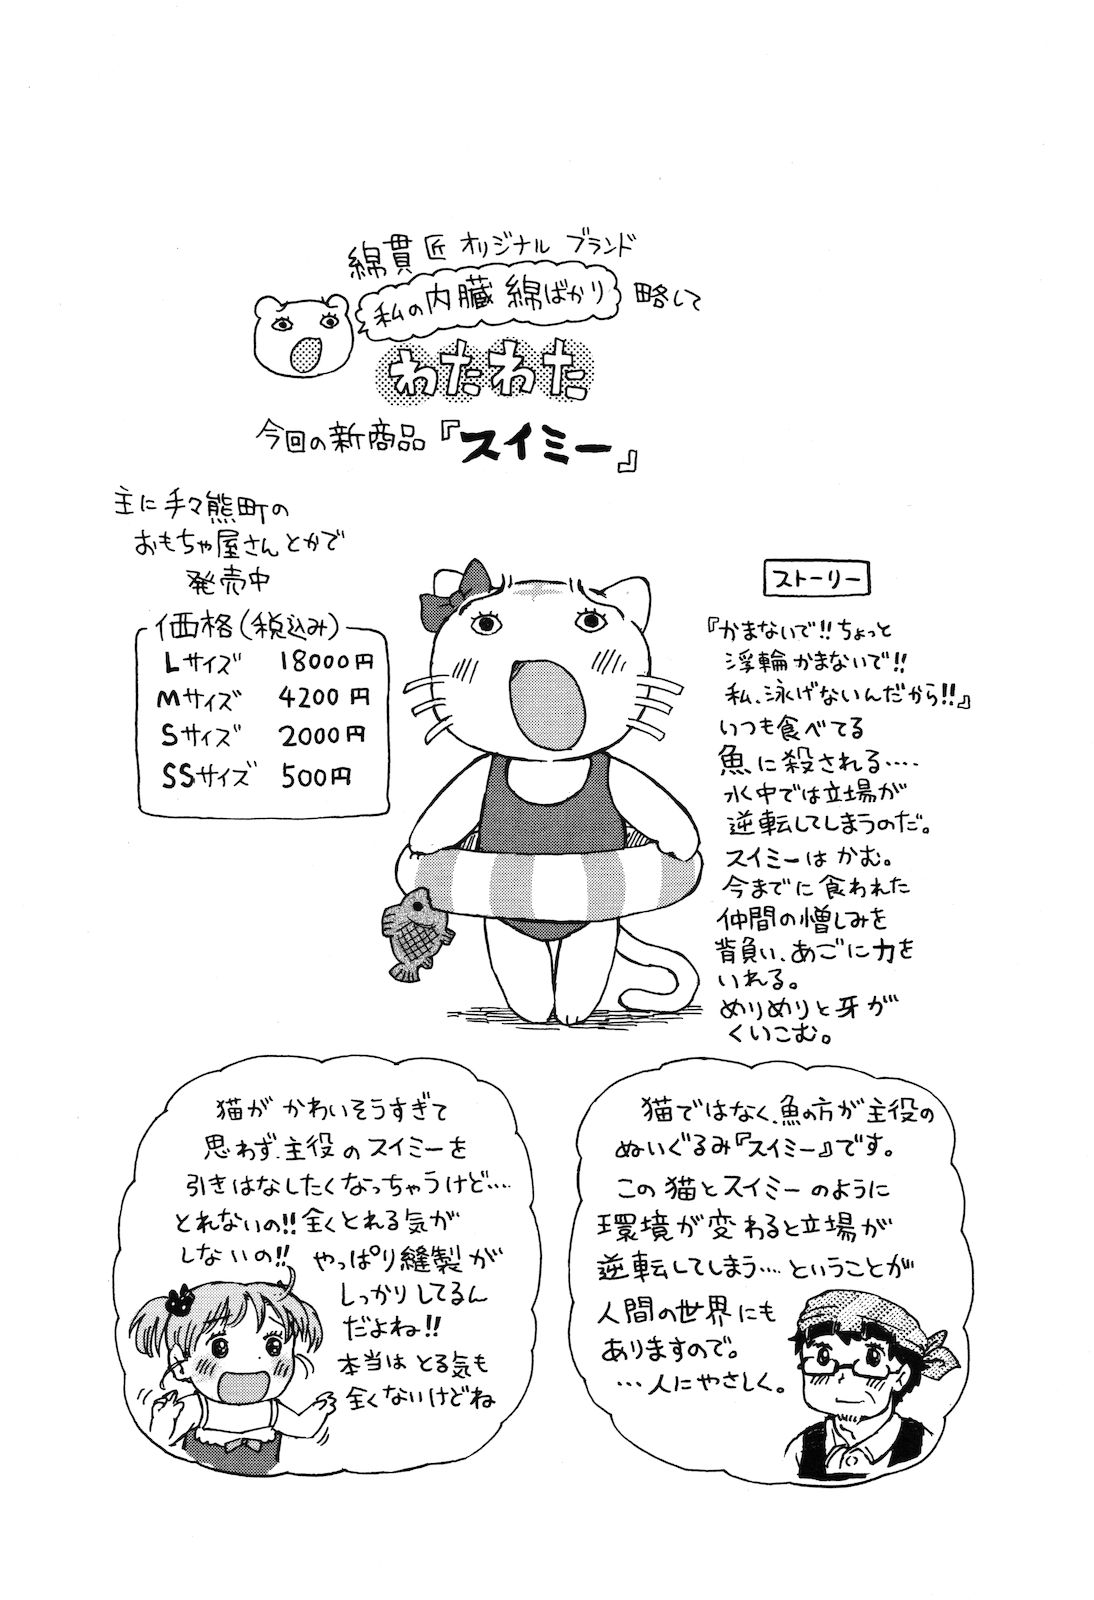 綿貫匠オリジナル ブランド
私の内臓綿ばかり 略して
わたわた
今回の新商品『スイミー』
主に手々熊町の
おもちゃ屋さんとかで
発売中
価格(税込み)
Lサイズ 18000円
Mサイズ 4200円
Sサイズ 2000円
SSサイズ 500円
ストーリー
『かまないで!!ちょっと
浮輪かまないで!!
私、泳げないんだから!!』
いつも食べてる
魚に殺される‥‥
水中では立場が
逆転してしまうのだ。
スイミーはかむ。
今までに食われた
仲間の憎しみを
背負い、あごに力を
いれる。
めりめりと牙が
くいこむ。
猫がかわいそうすぎて
思わず、主役のスイミーを
引きはなしたくなっちゃうけど‥‥
とれないの!!全くとれる気が
しないの!! やっぱり縫製が
しっかりしてるん
だよね!!
本当はとる気も
全くないけどね
猫ではなく、魚の方が主役の
ぬいぐるみ『スイミー』です。
この猫とスイミーのように
環境が変わると立場が
逆転してしまう‥‥ということが
人間の世界にも
ありますので。
…人にやさしく。